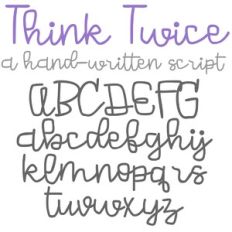 Think Twice
a hand-written script
ABCDEFG
abcdefghij
klmnopqrs
tuvwxyz